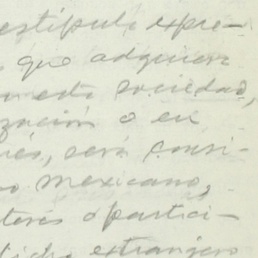 estipula expre-
que adquiera
en esta sociedad,
zación o en
és, será consi-
o mexicano,
terés o partici-
dicho extranjero